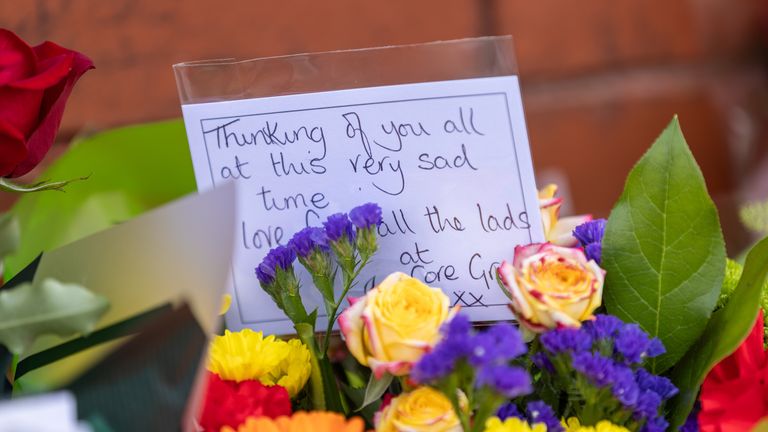 Thinking of you all
at this very sad
time
love all the lads
at
Core Gr
xx